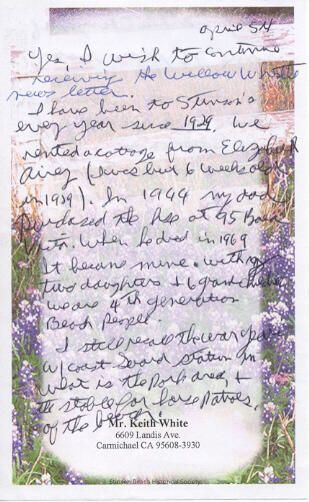 April 5th
Yes, I wish to continue
receiving the Willow White
news letter.
I have been to Stinson's
every year since 1939. We
rented a cottage from Elizabeth
Airey (I was but 6 weeks old
in 1939). In 1944 my dad
purchased the hse at 95
When he died in 1969
It became mine. with my
two daughters + 6 grandchildren
we are 4th generation
Beach People.
I still recall the war years
w/coast Guard station in
what is the park area, +
the stable for horse patrols,
of the beach.
Mr. Keith White
6609 Landis Ave.
Carmichael CA 95608-3930
Stinson Beach Historical Society